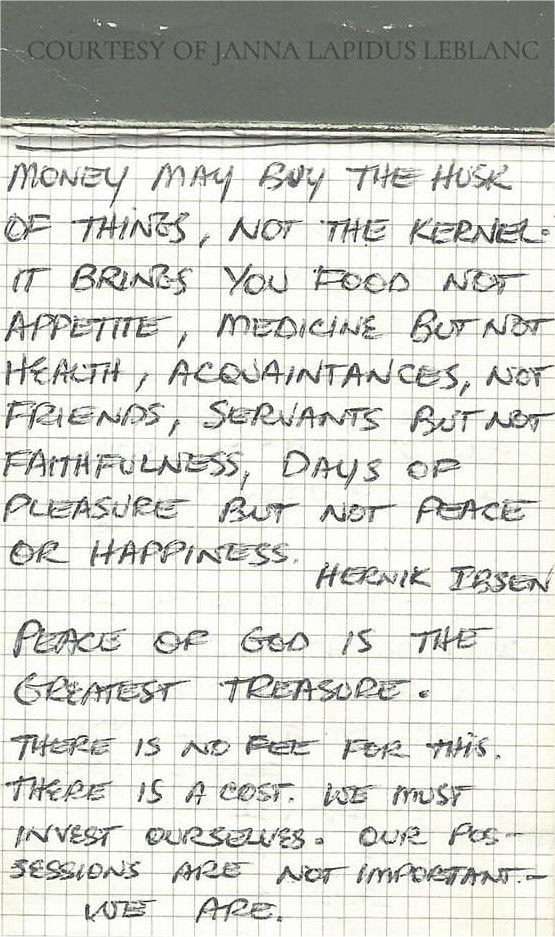 COURTESY OF JANNA LAPIDUS LEBLANC
MONEY MAY BUY THE HUSK
OF THINGS, NOT THE KERNEL.
IT BRINGS YOU FOOD NOT
APPETITE, MEDICINE BUT NOT
HEALTH, ACQUAINTANCES, NOT
FRIENDS, SERVANTS BUT NOT
FAITHFULNESS, DAYS OF
PLEASURE BUT NOT PEACE
OR HAPPINESS.
HERNIK IBSEN
PEACE OF GOD IS THE
GREATEST TREASURE.
THERE IS NO FEE FOR THIS.
THERE IS A COST. WE MUST
INVEST OURSELVES. OUR POS-
SESSIONS ARE NOT IMPORTANT.-
WE ARE.